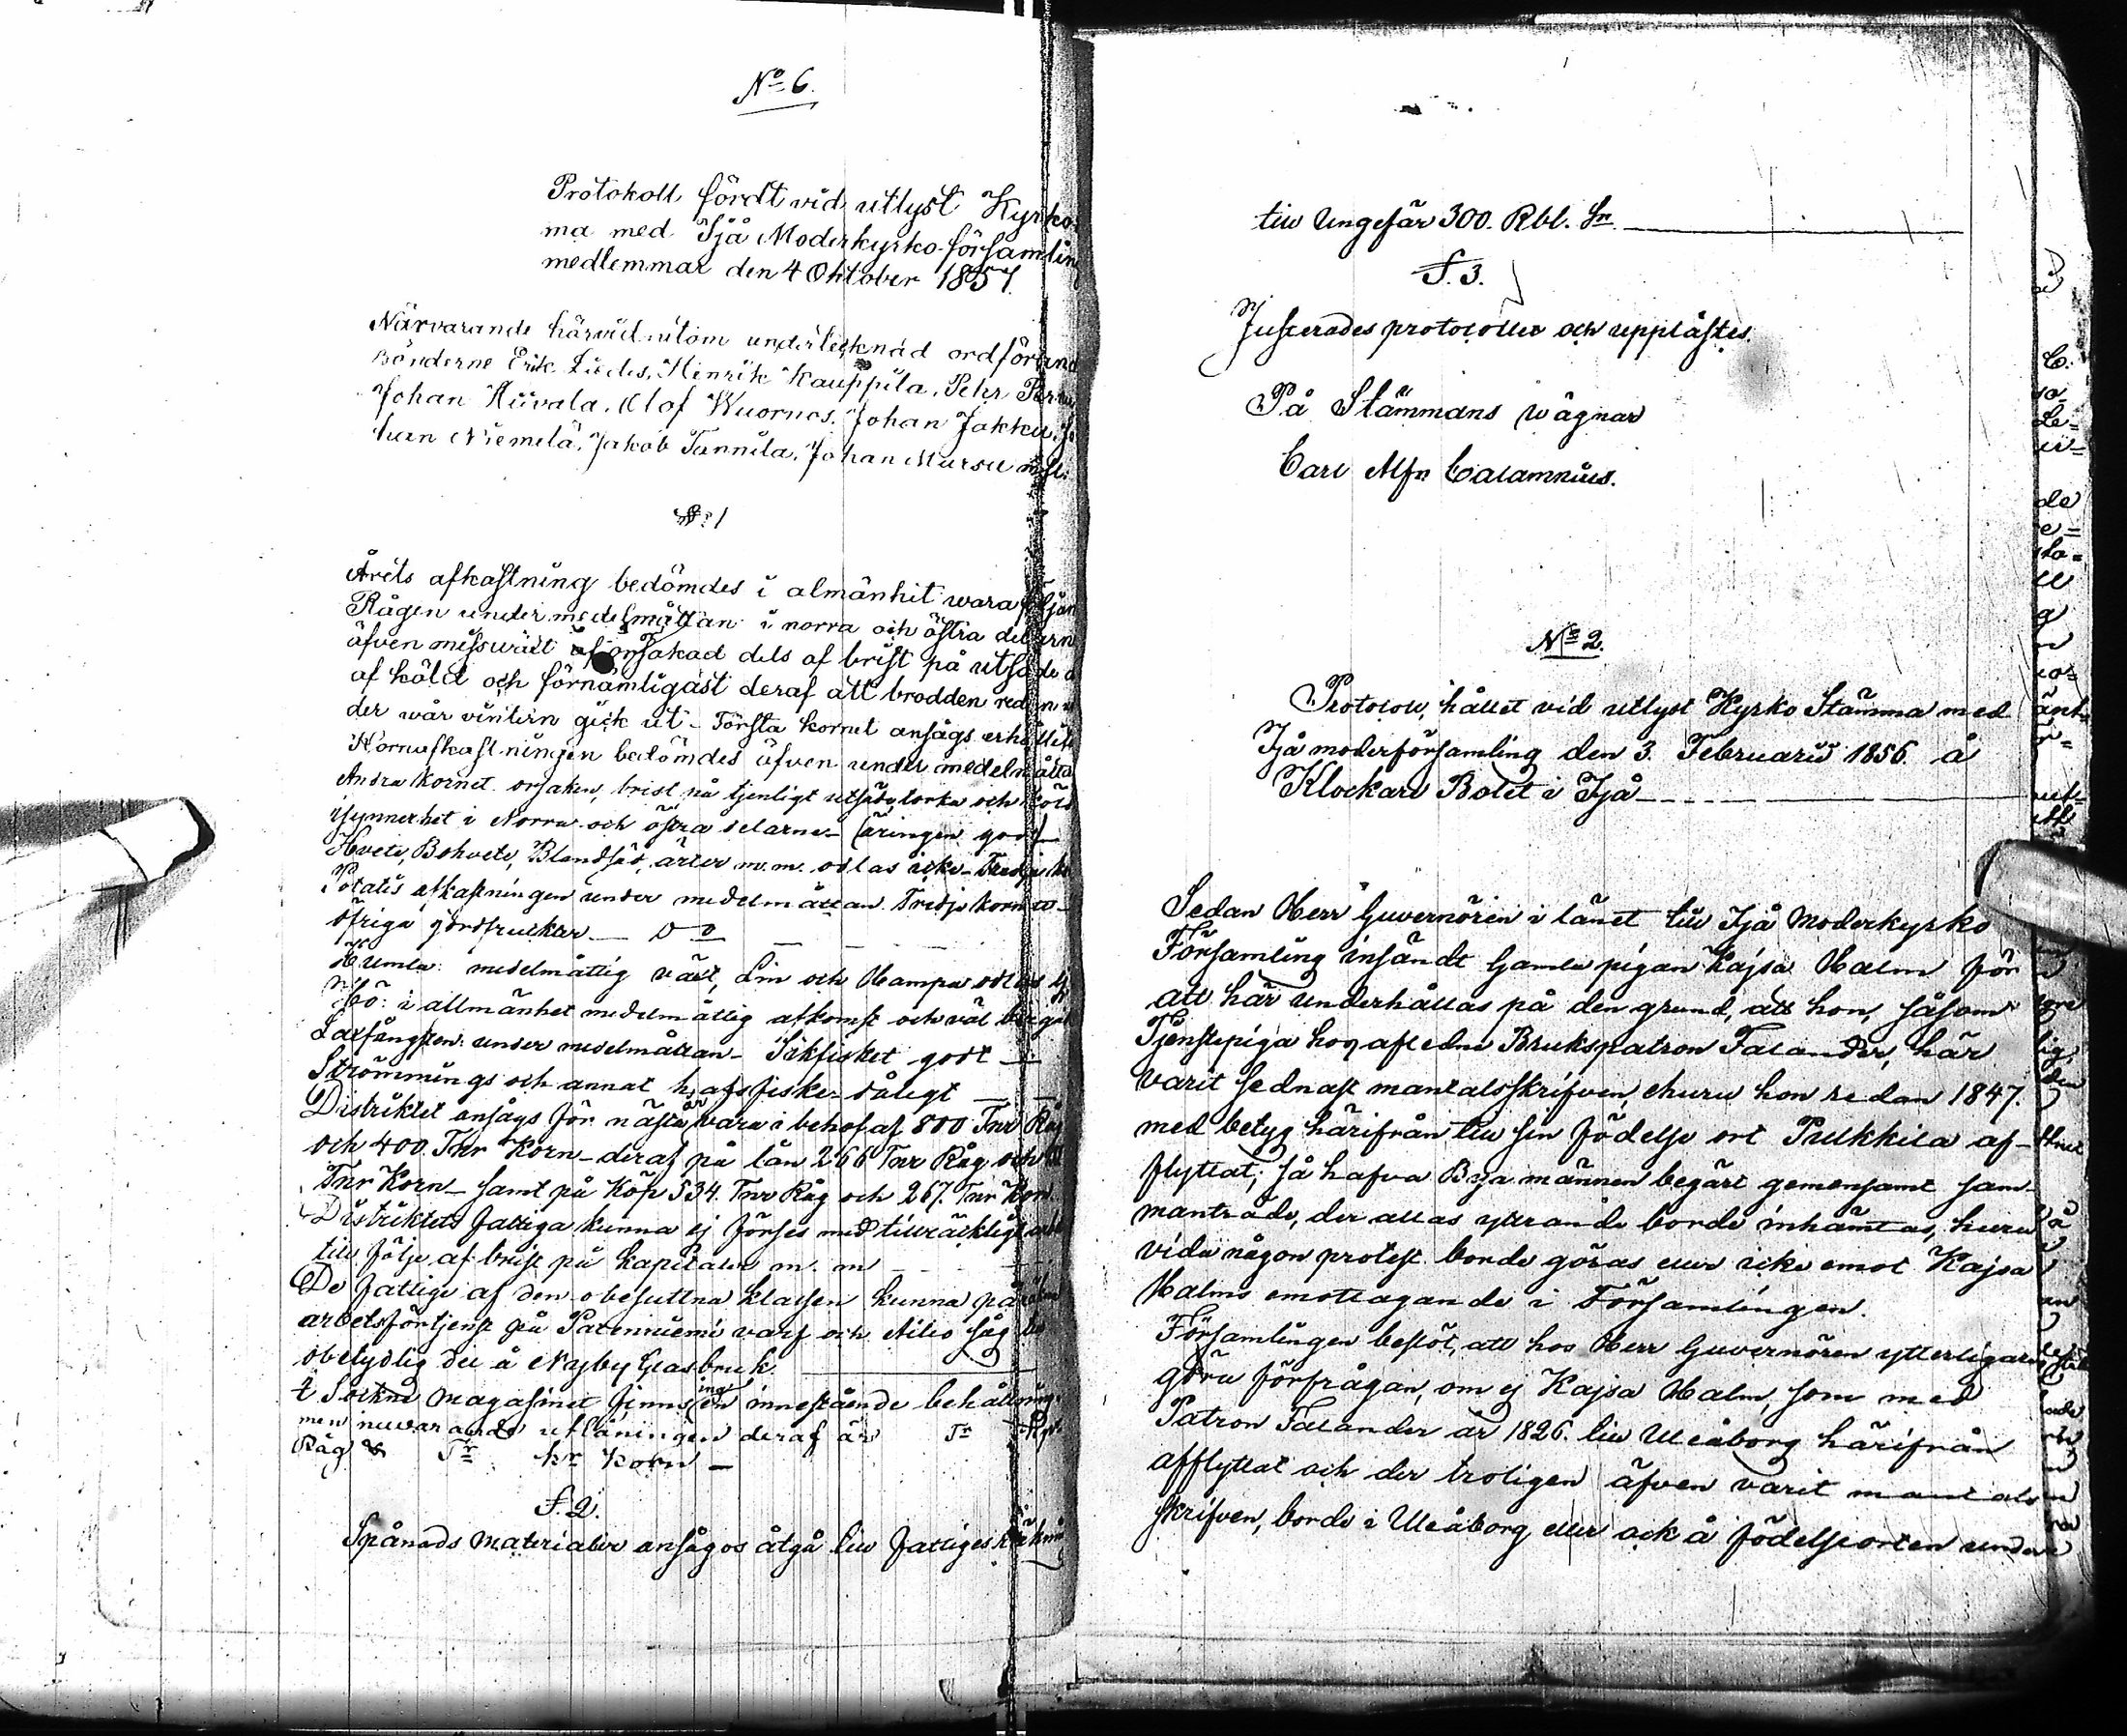 No 6.
Protokoll, fördt vid utlyst Kyrko
ma med Ijå Moderkyrko-församlin
medlemmar den 4 Oktober 1857.
Närvarande härvid utom undertecknad ordförand
Bönderne Erik Liedes, Henrik Kauppila, Pehr
Johan Kiivala, Olof Wuornos, Johan Jakku, J
han Niemelä, Jakob Tannila, Johan Mursu m.fl.
§ 1
Årets afkastning bedömdes i almänhet wara följan
Rågen under medelmåttan i norra och östra delarn
äfven missväxt orsakad dels af brist på utsäde
af köld och förnämligast deraf att brodden redan
der vår vintern gick ut - Första kornet ansågs erhållit
Kornafkastningen bedömdes äfven under medelmåtta
Andra kornet. orsaken, brist på tjenligt utsäde, torka och köld
synnerhet i Norra och östra delarne - (äringen god)
Hvete, Bohvete, Blandsäd, ärter m.m. odlas icke -
Potatis afkastningen under medelmåttan. Tredje kornet
öfriga jordfrukter — Do —
Humla: medelmåttig växt, Lin och Hampa odlas
Hö: i allmänhet medelmåttig afkomst och väl bergat
Laxfångsten: under medelmåttan - Sikfisket godt —
Strömmings och annat hafsfiske - dåligt —
Distriktet ansågs för nästa år vara i behof af 800 Tnr Råg
och 400. Tnr Korn - deraf på lån 266 Tnr Råg och
Tnr Korn - samt på Köp 534. Tnr Råg och 267. Tnr Korn.
Distriktets fattiga kunna ej förses med tillräckligt arbe
till följe af brist på kapitaler m. m
De fattige af den obesuttna klassen kunna påräkna
arbetsförtjenst på Pateniemi varf och såg
obetydlig del å Nyby Glasbruk.
I Sockne magasinet finns ing en innestående behållning.
men nuvarande utlåningen deraf är Tr
Råg & Tr kr korn —
§. 2.
Spånads materialier ansågos åtgå till fattiges
till Ungefär 300. Rbl. Sr.
§. 3.
Justerades protocollet och upplästes.
På Stämmans wägnar
Carl Alfr Calamnius.
No 2.
Protocoll, hållet vid utlyst Kyrko Stämma med
Ijå moderförsamling den 3. Februarii 1856. å
Klockare Bolet i Ijå
Sedan Herr Guvernören i länet till Ijå Moderkyrko
Församling insändt Gamla pigan Kajsa Halm för
att här underhållas på den grund, att hon, såsom
Tjenstepiga hos afledne Brukspatron Falander, här
varit sednast mantalsskrifven, ehuru hon redan 1847.
med betyg härifrån till sin födelse ort Pulkkila af-
flyttat; så hafva Bya männen begärt gemensamt sam-
manträde, der allas yttrande borde inhämtas, huru
vida någon protest borde göras eller icke emot Kajsa
Halms emottagande i Församlingen.
Församlingen beslöt, att hos Herr Guvernören ytterligare
göra förfrågan, om ej Kajsa Halm, som med
Patron Falander år 1826. till Uleåborg härifrån
afflyttat och der troligen äfven varit mantals
skrifven, borde i Uleåborg eller ock å födelseorten under